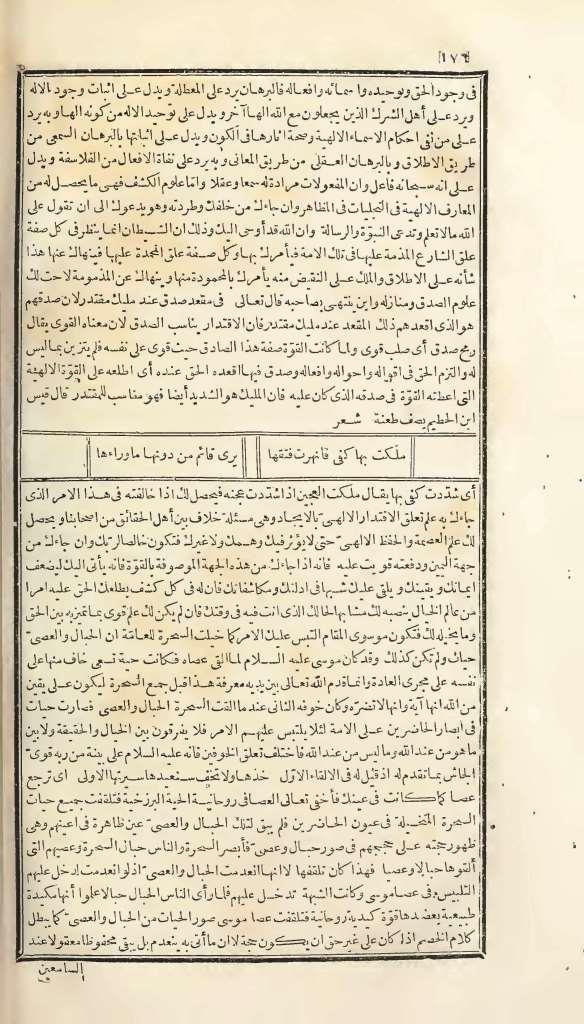 [١٧٦]
فى وجود الحق وتوحيده وأسمائه وأفعاله فالبرهان يرد على المعطلة ويدل على اثبات وجود الاله
ويرد على أهل الشرك الذين يجعلون مع الله الها آخر ويدل على توحيد الاله من كونه الها وبه يرد
على من نفى احكام الاسماء الالهية وصحة اثارها فى الكون ويدل على اثباتها بالبرهان السمعى من
طريق الاطلاق وبالبرهان العقلى من طريق المعانى وبه يرد على نفاة الافعال من الفلاسفة ويدل
على انه سبحانه فاعل وان المفعولات مرادة له سمعا وعقلا واما علوم الكشف فهى ما يحصل له من
المعارف الالهية فى التجليات فى المظاهر وان جاءك من خلفك وطردته وهو يدعوك الى ان تقول على
الله مالا تعلم وتدعى النبوة والرسالة وان الله قد أوحى اليك وذلك ان الشيطان انما ينظر فى كل صفة
علق الشارع المذمة عليها فى تلك الامة فيأمرك بها وكل صفة علق المحمدة عليها فينهاك عنها هذا
شأنه على الاطلاق والملك على النقيض منه يأمرك بالمحمودة منها وينهاك عن المذمومة لاحت لك
علوم الصدق ومنازله وأين ينتهى بصاحبه قال تعالى فى مقعد صدق عند مليك مقتدر لان صدقهم
هو الذى اقعدهم ذلك المقعد عند مليك مقتدر فان الاقتدار يناسب الصدق لان معناه القوى يقال
رمح صدق أى صلب قوى ولما كانت القوة صفة هذا الصادق حيث قوى على نفسه فلم يتزين بما ليس
له والتزم الحق فى اقواله واحواله وافعاله وصدق فيها اقعده الحق عنده أى اطلعه على القوة الالهية
التى اعطته القوة فى صدقه الذى كان عليه فان المليك هو الشديد أيضا فهو مناسب للمقتدر قال قيس
ابن الحطيم يصف طعنة شعر
ملكت بها كفى فانهرت فتقها يرى قائم من دونها ماوراءها
أى شددت كفى بها يقال ملكت العجين اذا شددت عجنه فيحصل لك اذا خالفته فى هذا الامر الذى
جاءك به علم تعلق الاقتدار الالهى بالايجاد وهى مسئلة خلاف بين أهل الحقائق من اصحابنا ويحصل
لك علم العصمة والحفظ الالهى حتى لا يؤثر فيك وهمك ولا غيرك فتكون خالصا لربك وان جاءك من
جهة اليمين ودفعته قويت عليه فانه اذا جاءك من هذه الجهة الموصوفة بالقوة فانه يأتى اليك ليضعف
ايمانك ويقينك ويلقى عليك شبها فى ادلتك ومكاشفاتك فان له فى كل كشف يطلعك الحق عليه امرا
من عالم الخيال ينصبه لك مشابها لحالك الذى انت فيه فى وقتك فان لم يكن لك علم قوى بما تميز به بين الحق
وما يخيله لك فتكون موسوى المقام التبس عليك الامر كما خيلت السحرة للعامة ان الحبال والعصى
حيات ولم تكن كذلك وقد كان موسى عليه السلام لما القى عصاه فكانت حية تسعى خاف منها على
نفسه على مجرى العادة وانما قدم الله تعالى بين يديه معرفة هذا قبل جمع السحرة ليكون على يقين
من الله انها آية وانها لا تضره وكان خوفه الثانى عند ما القت السحرة الحبال والعصى فصارت حيات
فى ابصار الحاضرين على الامة لئلا يلتبس عليهم الامر فلا يفرقون بين الخيال والحقيقة ولا بين
ما هو من عند الله وما ليس من عند الله فاختلف تعلق الخوفين فانه عليه السلام على بينة من ربه قوى
الجاش بما تقدم له اذ قيل له فى الالقاء الاول خذها ولا تخف سنعيدها سيرتها الاولى اى ترجع
عصا كما كانت فى عينك فأخفى تعالى العصا فى روحانية الحية البرزخية فتلقفت جميع حيات
السحرة المتخيلة فى عيون الحاضرين فلم يبق لتلك الحبال والعصى عين ظاهرة فى اعينهم وهى
ظهور حجته على حججهم فى صور حبال وعصى فأبصر السحرة والناس حبال السحرة وعصيهم التى
ألقوها حبالا وعصيا فهذا كان تلقفها لا انها انعدمت الحبال والعصى اذ لو انعدمت لدخل عليهم
التلبيس فى عصا موسى وكانت الشبهة تدخل عليهم فلما رأى الناس الحبال حبالا علموا أنها مكيدة
طبيعية يعضدها قوة كيدية روحانية فتلقفت عصا موسى صور الحيات من الحبال والعصى كما يبطل
كلام الخصم اذا كان على غير حق ان يكون حجة لا ان ما أتى به ينعدم بل يبقى محفوظا معقولا عند
السامعين